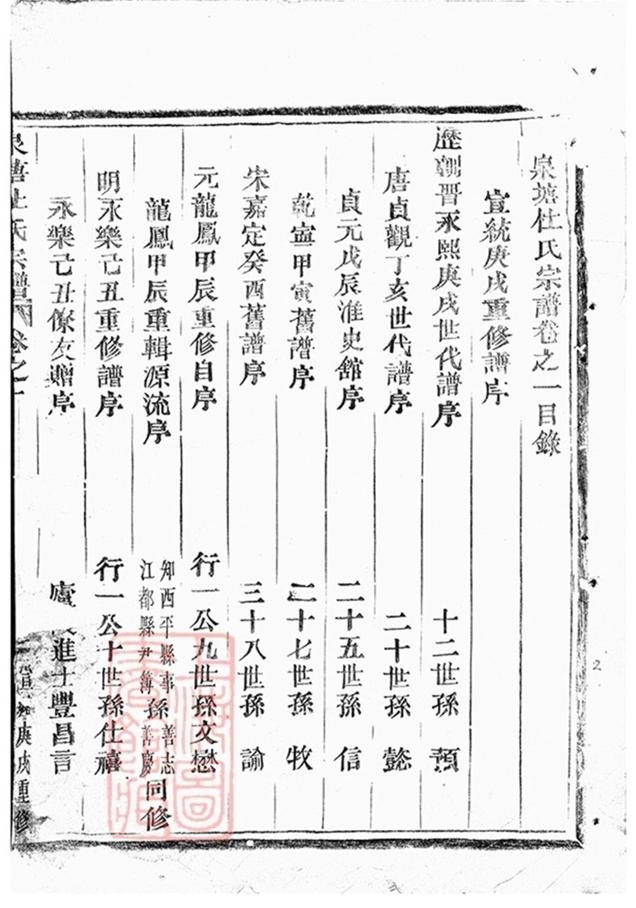 泉塘杜氏宗譜卷之一目錄
宣統庚戌重修譜序
歷朝晋永熙庚戌世代譜序 十二世孫 預
唐貞觀丁亥世代譜序 二十世孫 懿
貞元戊辰淮史館序 二十五世孫 信
乾寧甲寅舊譜序 二十七世孫 牧
宋嘉定癸酉舊譜序 三十八世孫 諭
元龍鳳甲辰重修自序 行一公九世孫文懋
龍鳳甲辰重輯源流序 知西平縣事孫善志 江都縣尹簿孫善慶 同修
明永樂己丑重修譜序 行一公十世孫仕禧
永樂己丑僚友贈序 廬 進士豐昌言
泉塘杜氏宗譜 卷之一
庚戌重修
2